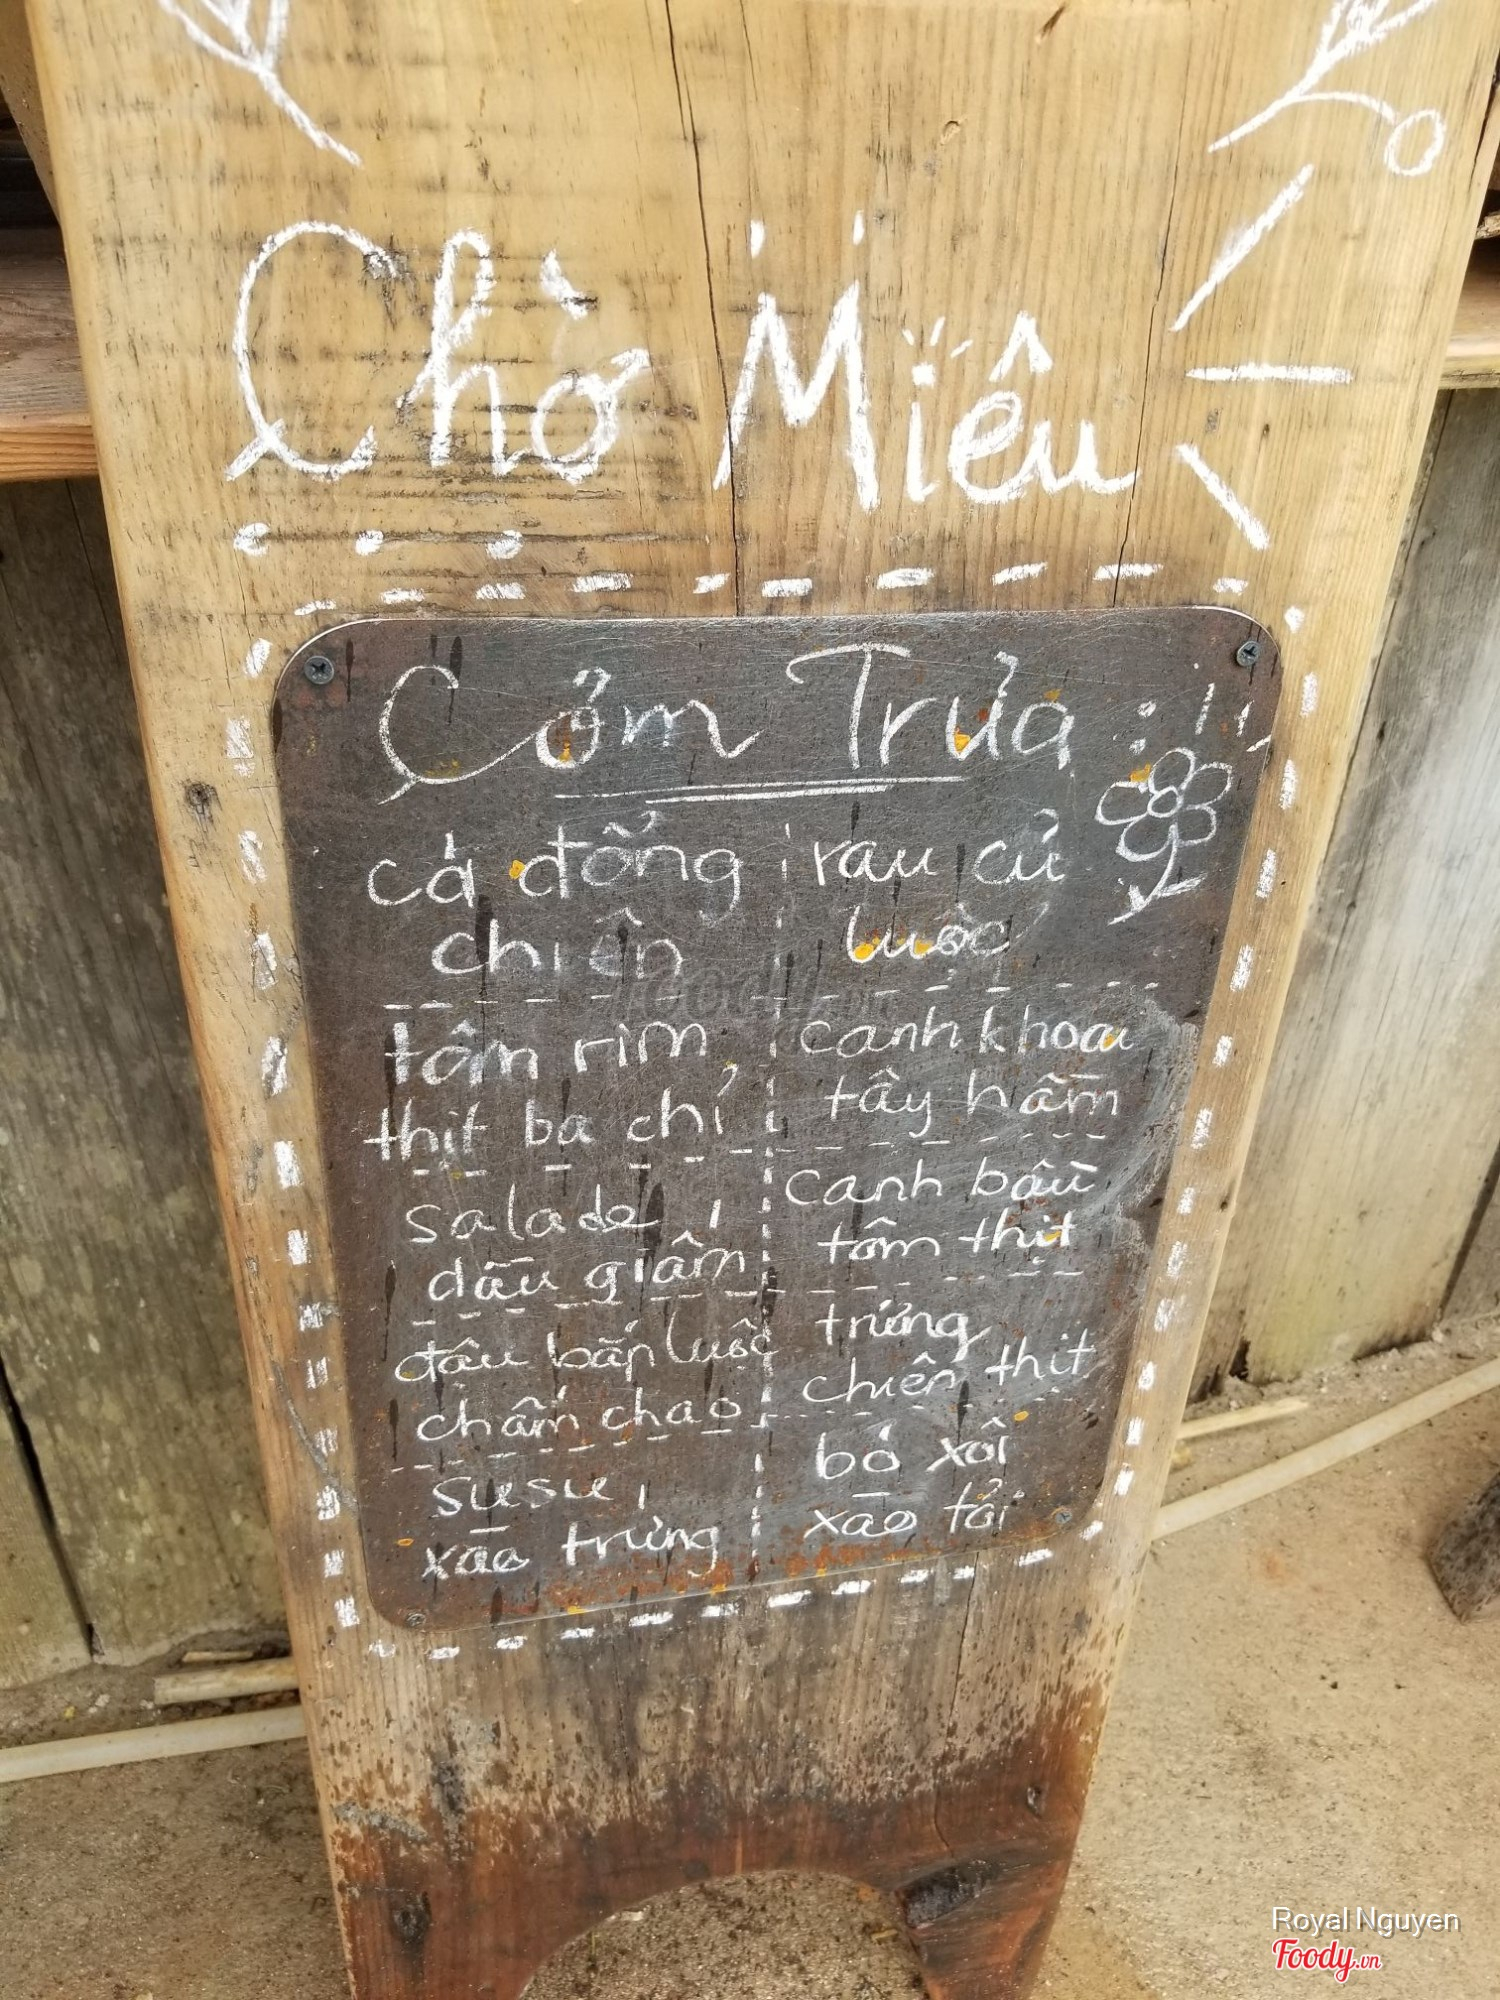 Chờ Miêu
Cơm Trưa :
cá đổng
chiên
tôm rim
thịt ba chỉ
salade
dầu giấm
đậu bắp luộc
chấm chao
susu
xào trứng
rau củ
luộc
canh khoai
tây hầm
canh bầu
tôm thịt
trứng
chiên thịt
bó xôi
xào tỏi
Royal Nguyen
Foody.vn